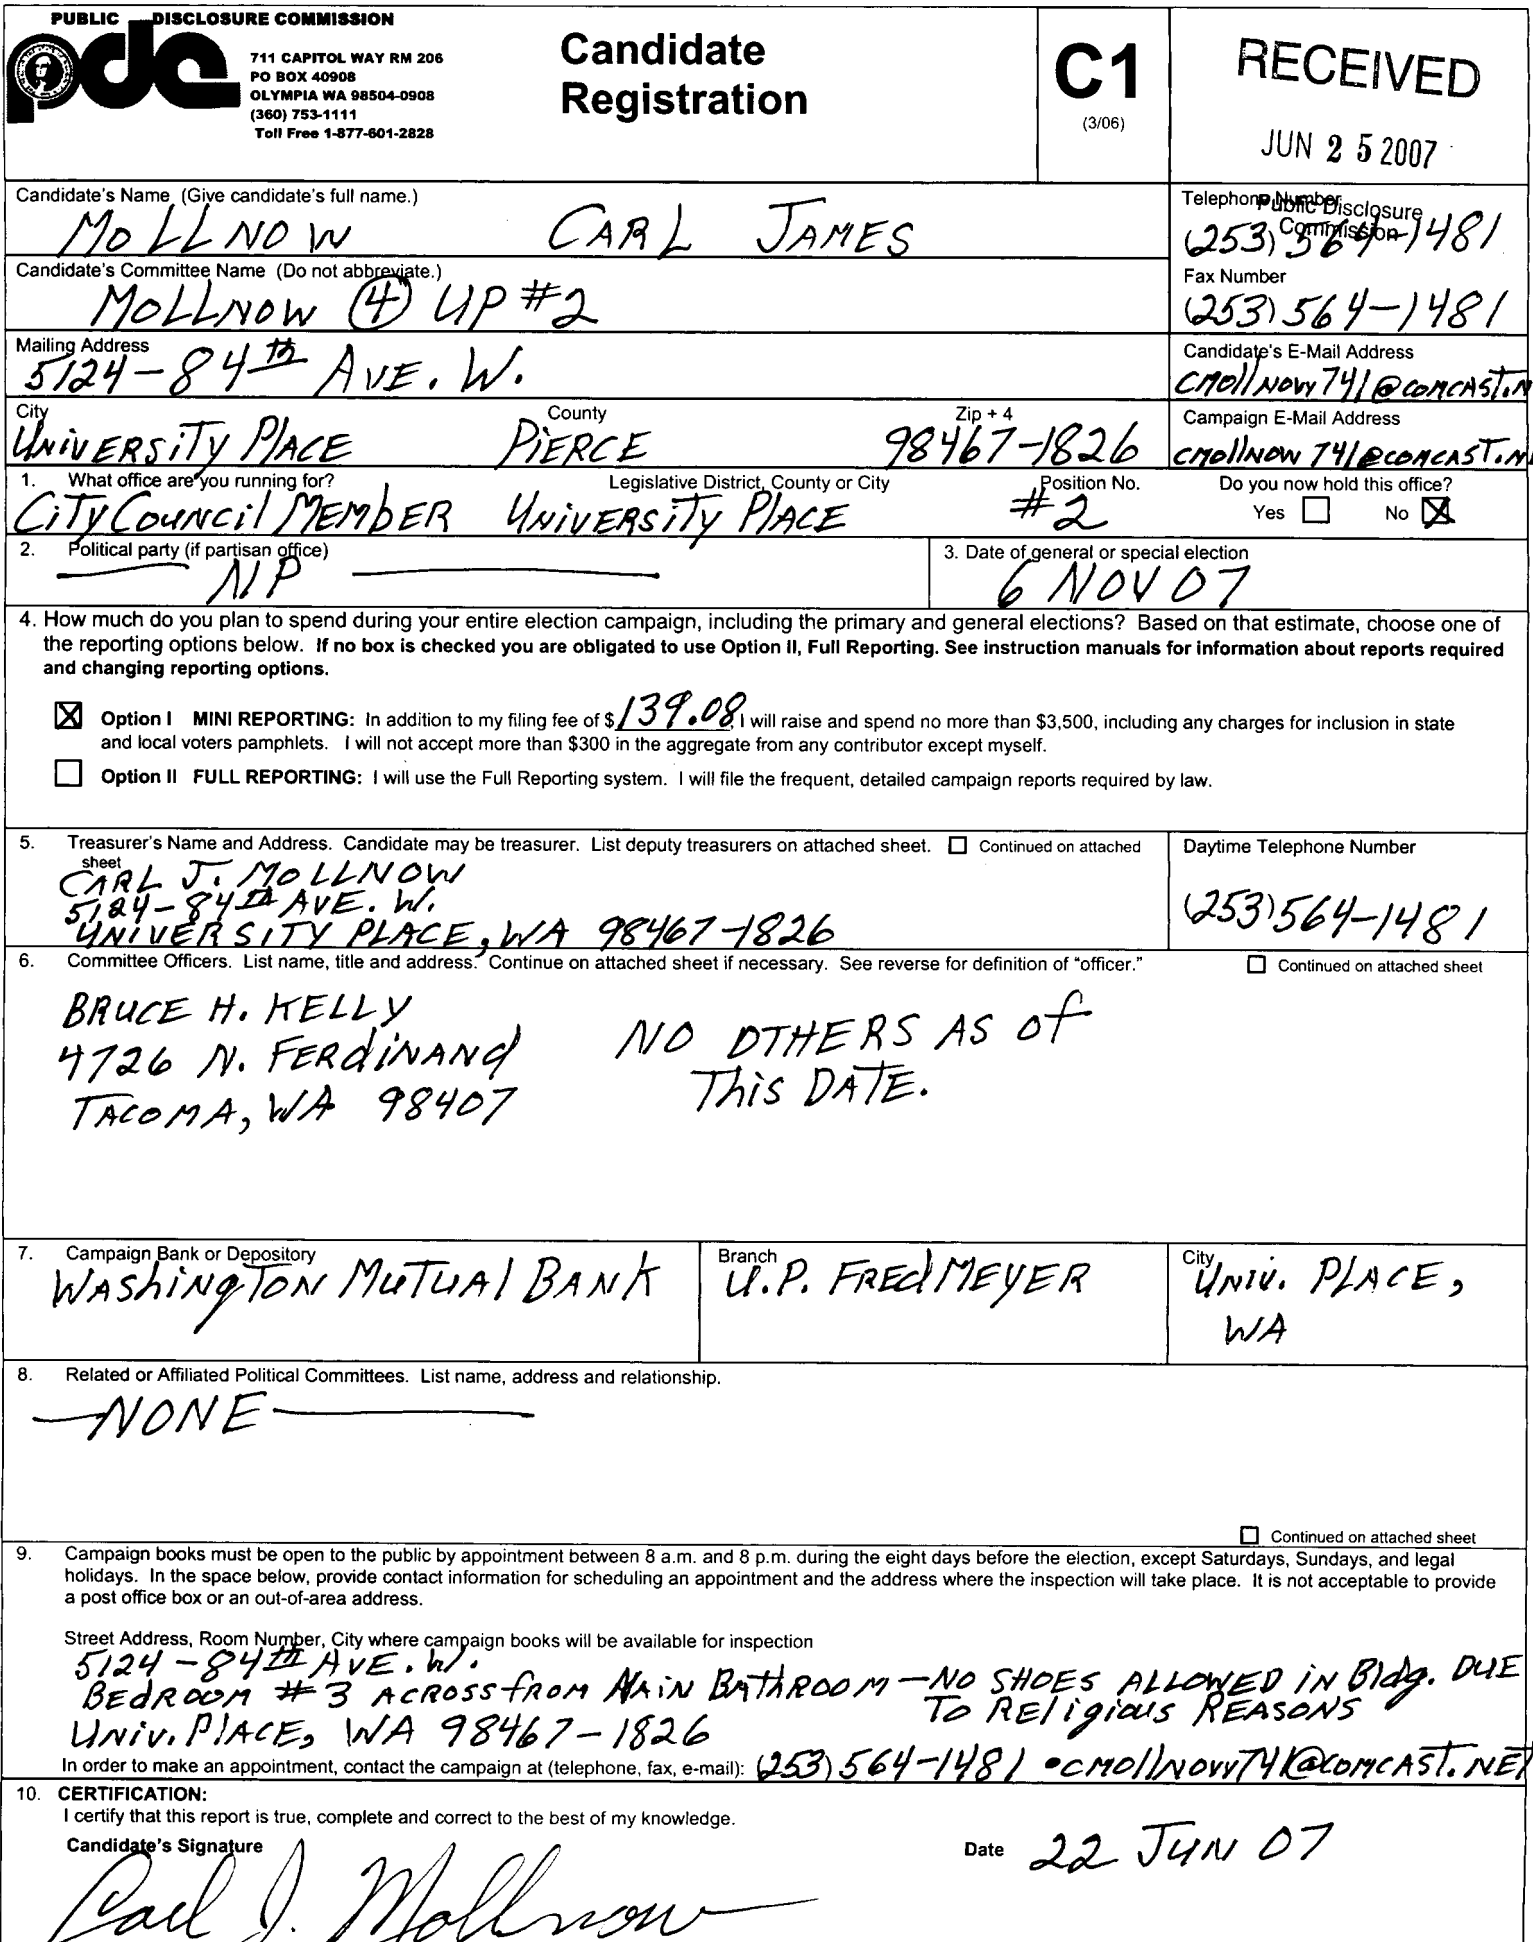 PUBLIC DISCLOSURE COMMISSION
pdc
711 CAPITOL WAY RM 206
PO BOX 40908
OLYMPIA WA 98504-0908
(360) 753-1111
Toll Free 1-877-601-2828
Candidate
Registration
C1
(3/06)
RECEIVED
JUN 25 2007
Public Disclosure
Commission
Candidate's Name (Give candidate's full name.)
MOLLNOW CARL JAMES
Telephone Number
(253) 564-1481
Candidate's Committee Name (Do not abbreviate.)
MOLLNOW 4 UP #2
Fax Number
(253) 564-1481
Mailing Address
5124-84th AVE. W.
Candidate's E-Mail Address
CMOllNOW741@COMCAST.N
City County Zip + 4
UNIVERSITY PLACE PIERCE 98467-1826
Campaign E-Mail Address
CMOllNOW741@COMCAST.N
1. What office are you running for? Legislative District, County or City Position No. Do you now hold this office?
CITY COUNCIL MEMBER UNIVERSITY PLACE #2 Yes No
2. Political party (if partisan office)
NP
3. Date of general or special election
6 NOV 07
4. How much do you plan to spend during your entire election campaign, including the primary and general elections? Based on that estimate, choose one of
the reporting options below. If no box is checked you are obligated to use Option II, Full Reporting. See instruction manuals for information about reports required
and changing reporting options.
Option I MINI REPORTING: In addition to my filing fee of $139.08, I will raise and spend no more than $3,500, including any charges for inclusion in state
and local voters pamphlets. I will not accept more than $300 in the aggregate from any contributor except myself.
Option II FULL REPORTING: I will use the Full Reporting system. I will file the frequent, detailed campaign reports required by law.
5. Treasurer's Name and Address. Candidate may be treasurer. List deputy treasurers on attached sheet. Continued on attached
sheet
CARL J. MOLLNOW
5124-84th AVE. W.
UNIVERSITY PLACE, WA 98467-1826
Daytime Telephone Number
(253) 564-1481
6. Committee Officers. List name, title and address. Continue on attached sheet if necessary. See reverse for definition of "officer." Continued on attached sheet
BRUCE H. KELLY
4726 N. FERDINAND
TACOMA, WA 98407
NO OTHERS AS OF
THIS DATE.
7. Campaign Bank or Depository
WASHINGTON MUTUAL BANK
Branch
U.P. FRED MEYER
City
UNIV. PLACE,
WA
8. Related or Affiliated Political Committees. List name, address and relationship.
NONE
Continued on attached sheet
9. Campaign books must be open to the public by appointment between 8 a.m. and 8 p.m. during the eight days before the election, except Saturdays, Sundays, and legal
holidays. In the space below, provide contact information for scheduling an appointment and the address where the inspection will take place. It is not acceptable to provide
a post office box or an out-of-area address.
Street Address, Room Number, City where campaign books will be available for inspection
5124-84th AVE. W.
BEDROOM #3 ACROSS FROM MAIN BATHROOM - NO SHOES ALLOWED IN Bldg. DUE
TO RELIGIOUS REASONS
UNIV. PLACE, WA 98467-1826
In order to make an appointment, contact the campaign at (telephone, fax, e-mail): (253) 564-1481 • CMOllNOW741@COMCAST.NET
10. CERTIFICATION:
I certify that this report is true, complete and correct to the best of my knowledge.
Candidate's Signature
Carl J. Mollnow
Date 22 JUN 07